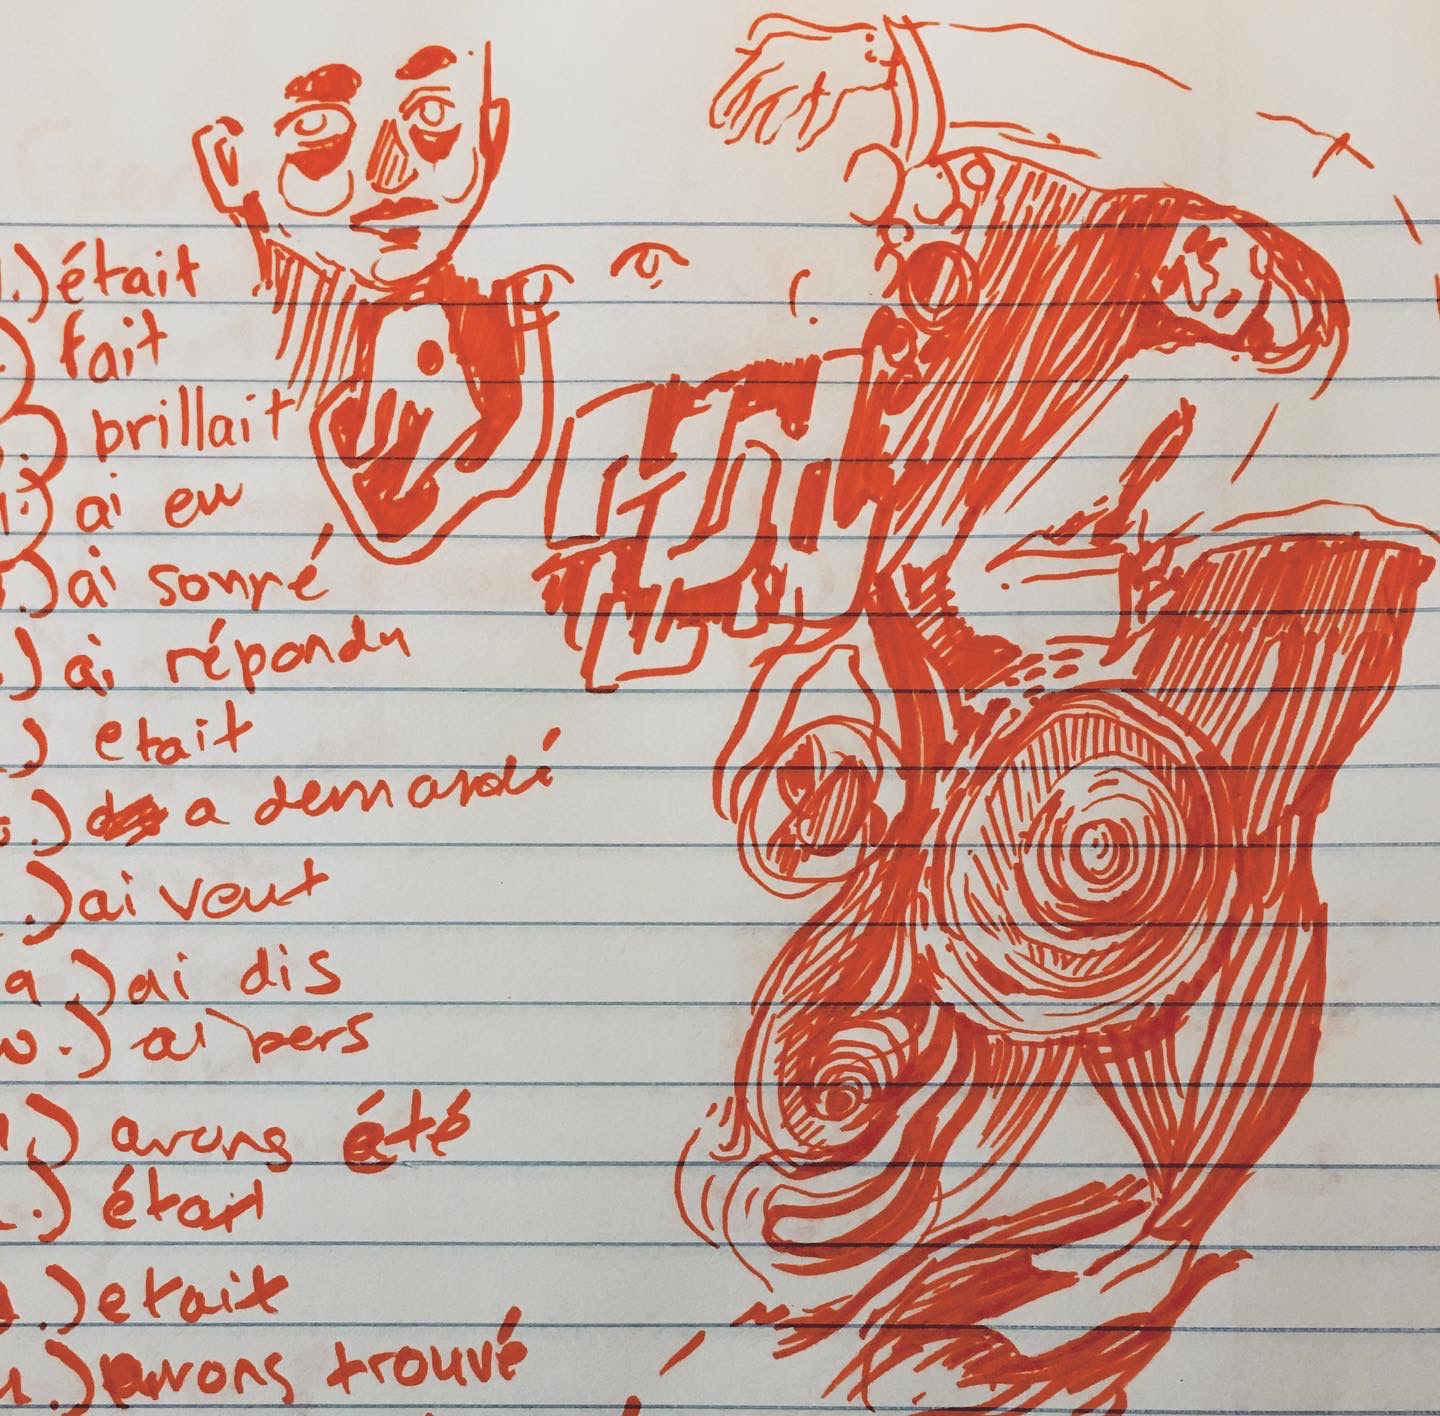 .) était
.) fait
.) brillait
.) ai eu
.) ai sonré
.) ai répondu
.) etait
.) a demandé
.) ai veut
.) ai dis
.) ai pers
.) avons été
.) était
.) etait
.) avons trouvé